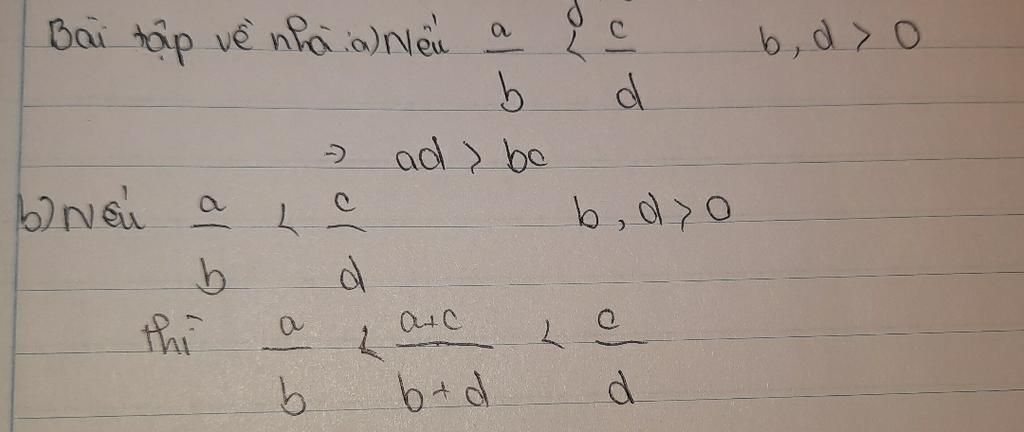 Bài tập về nhà: a) Nếu a/b < c/d b, d > 0
⇒ ad > bc
b) Nếu a/b < c/d b, d > 0
thì a/b < a+c/b+d < c/d